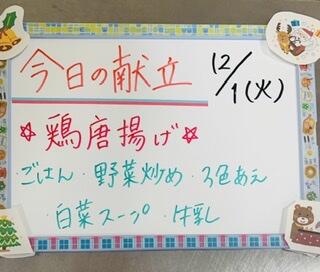 今日の献立
12/1(火)
☆鶏唐揚げ☆
・ごはん・野菜炒め・3色あえ
・白菜スープ・牛乳